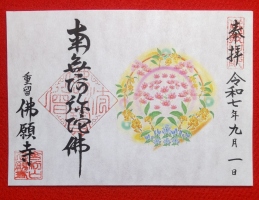 奉拝
令和七年九月一日
南無阿弥陀佛
重留
佛願寺